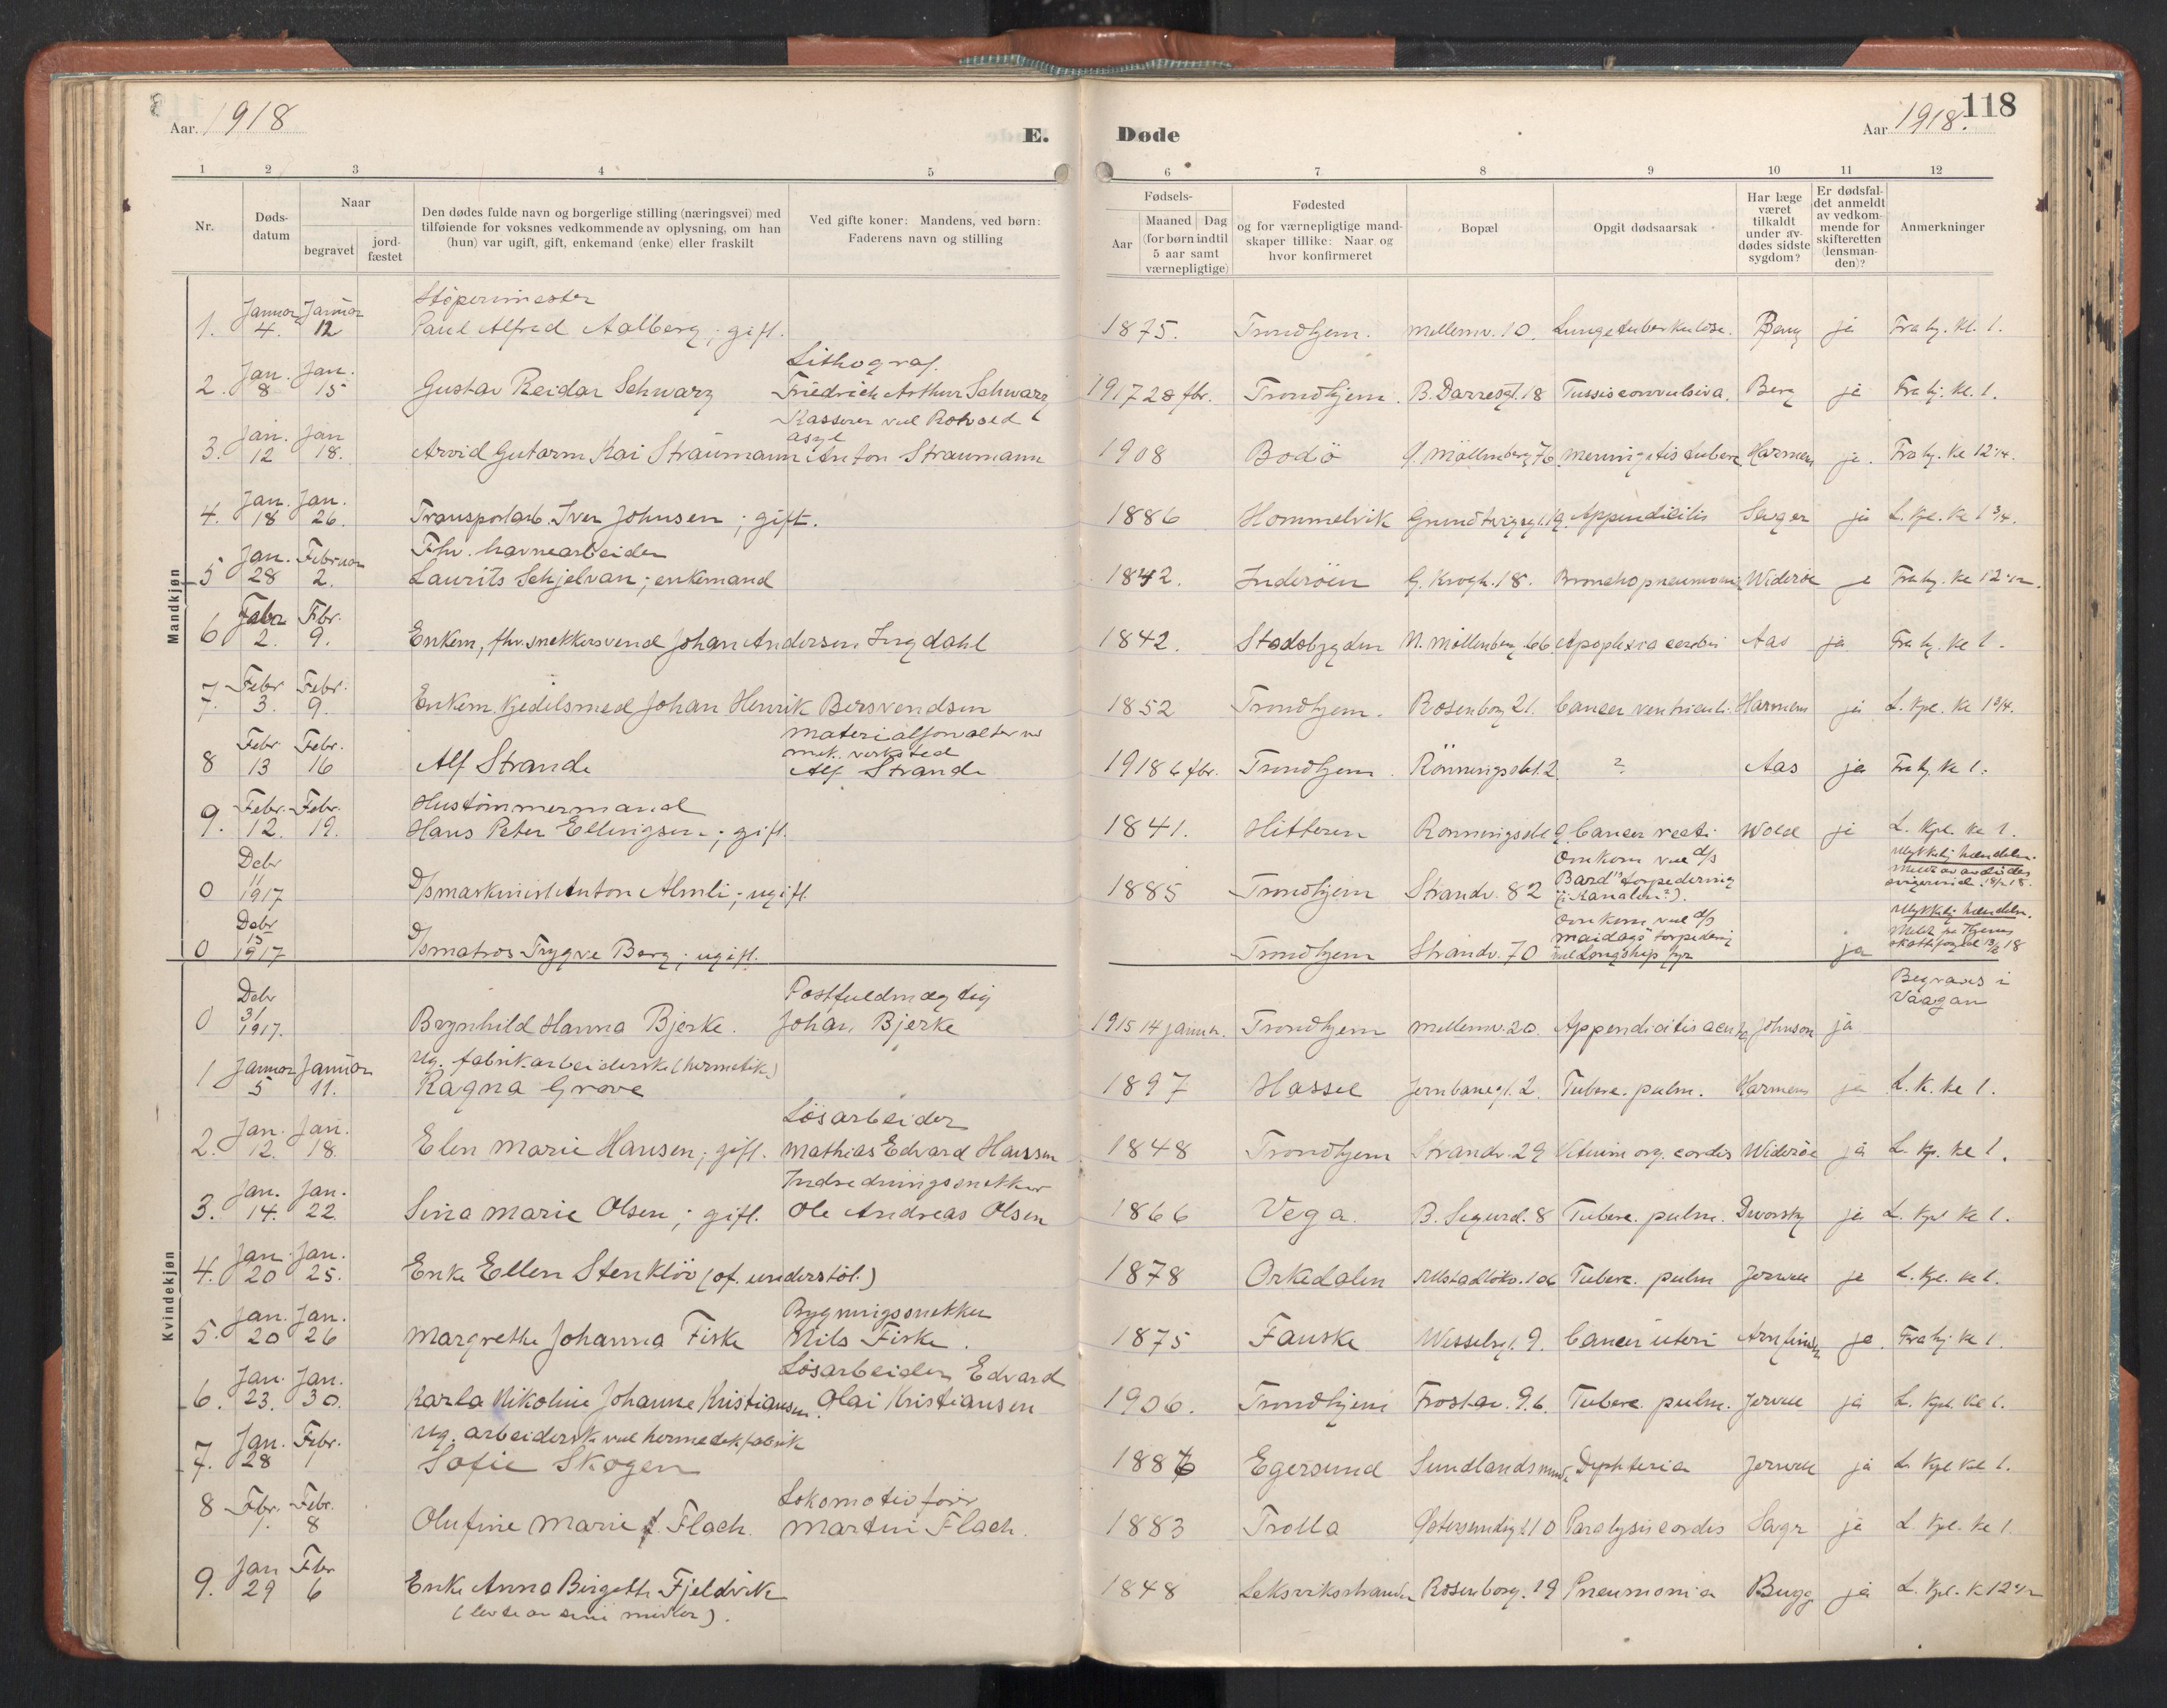 Aar. 1918
E.
Døde
Aar 1918.
118
1 2 3 4 5 6 7 8 9 10 11 12
Nr.
Døds-
datum
Naar
begravet
jord-
fæstet
Den dødes fulde navn og borgerlige stilling (næringsvei) med
tilføiende for voksnes vedkommende av oplysning, om han
(hun) var ugift, gift, enkemand (enke) eller fraskilt
Ved gifte koner: Mandens, ved børn:
Faderens navn og stilling
Fødsels-
Aar
Maaned Dag
(for børn indtil
5 aar samt
værnepligtige)
Fødested
og for værnepligtige mand-
skaper tillike: Naar og
hvor konfirmeret
Bopæl
Opgit dødsaarsak
Har læge
været
tilkaldt
under av-
dødes sidste
sygdom?
Er dødsfal-
det anmeldt
av vedkom-
mende for
skifteretten
(lensman-
den)?
Anmerkninger
Mandkjøn
Støpermester
1. Januar 4. Januar 12 Paul Alfred Aalberg; gift. 1875. Trondhjem. Mellemv. 10. Lungetuberkulose. Bang ja Fra hj. kl. 1.
Lithograf.
2. Jan. 8 Jan. 15 Gustav Reidar Schwarz Friedrich Arthur Schwarz 1917 28 fbr. Trondhjem. B. Darresgt. 18 Tussis convulsiva. Berg ja Fra hj. kl. 1.
Kasserer ved Rotvold
asyl
3. Jan. 12 Jan 18. Arvid Gutorm Kai Straumann Anton Straumann 1908 Bodö Ø. Möllenberg 76 Meningitis tuberc. Harmens ja. Fra hj. Kl 12 1/4.
4. Jan. 18 Jan. 26. Transportarb. Iver Johnsen; gift. 1886 Hommelvik Grundtvigsgt. Appendicitis ja L. Kpl. Kl 1 3/4.
Fhv. havnearbeider
5 Jan. 28 Februar 2. Laurits Schjelvan; enkemand 1842. Inderöen G. Krogh. 18. Bronchopneumoni Wideröe ja Fra hj. Kl 12 1/2.
6 Febr 2. Fbr. 9. Enkem, fhv. snekkersvend Johan Andersen Ingdahl 1842. Stadsbygden N. Möllenberg 66. Apoplexia cerebri Aas ja Fra hj. Kl 1.
7. Febr 3. Febr. 9. Enkem. Kjedelsmed Johan Henrik Bersvendsen 1852 Trondhjem. Rosenborg 21. Cancer ventriculi. Harmens ja L. Kpl. Kl 1 3/4.
Materialforvalter ved
mek. verksted
8 Febr. 13 Febr. 16 Alf Strande Alf Strande 1918 6 fbr. Trondhjem. Rönningsbk. 2 ? Aas ja Fra hj Kl 1.
Hustömmermand
9. Febr. 12. Febr. 19. Hans Peter Ellingsen; gift. 1841. Hitteren Rönningsbk 9. Cancer recti. Wold ja L. Kpl. Kl 1.
0 Debr 11 1917 D/smaskinist Anton Almli; ugift. 1885 Trondhjem Strandv. 82
Omkom ved d/s
"Bard"s torpedering
(i Kanalen?).
Ulykkelig hændelse.
Meldt av avdödes
svigerinde 18/2 18.
0 Debr 15 1917 D/smatros Trygve Berg; ugift. Trondhjem Strandv. 70
Omkom ved d/s
"Maidag"s torpedering
ved Longship fyr
ja
Ulykkelig hændelse.
Meldt fra Hjems
skattefogd 13/6 18
Kvindekjøn
Postfuldmægtig
0 Debr 31 1917. Brynhild Hanna Bjerke. Johan Bjerke 1915 14 januar. Trondhjem Mellemv. 20. Appendicitis acuta Johnson ja
Begraves i
Vaagan
Ug. fabrikarbeiderske (hermetik.)
1 Januar 5 Januar 11. Ragna Grove 1897 Hassel Jernbanegt. 2. Tuberc. pulm. Harmens ja L. K. kl 1.
Lösarbeider
2. Jan. 12. Jan. 18. Elen Marie Hansen; gift. Mathias Edvard Hansen 1848 Trondhjem Strandv. 29 Vitium org. cordis Wideröe ja L. Kp. kl 1.
Indredningssnekker
3. Jan. 14. Jan. 22 Sina Marie Olsen; gift. Ole Andreas Olsen 1866 Vega B. Sigurd. 8 Tuberc. pulm. Dworsky ja L. Kpl kl 1.
4. Jan. 20 Jan. 25. Enke Ellen Stenklöv (of. understöt.) 1878 Orkedalen Ulstadlökv. 10b Tuberc. pulm Jervell ja L. Kpl. kl 1.
Bygningssnekker
5. Jan. 20 Jan. 26 Margrethe Johanna Fiske Nils Fiske. 1875 Fauske Wesselsgt. 9. Cancer uteri ja. Fra hj. kl 1.
Lösarbeider Edvard
6. Jan. 23. Jan. 30. Karla Nikoline Johanne Kristiansen. Olai Kristiansen 1906. Trondhjem Frostav. 9b. Tuberc. pulm. Jervell ja L. Kpl. kl 1.
Ug. arbeiderske ved hermetikfabrik
7. Jan. 28 Febr. 1 Sofie Skogen 1886 Egersund Sundlands Dyphteria Jervell ja L. Kpl kl 1.
Lokomotivförer
8 Fbr. 1. Febr. 8 Olufine Marie f. Flach. Martin Flach. 1883 Trolla 10 Paralysis cordis ja L. Kpl. kl 1.
9. Jan 29 Fbr 6 Enke Anna Birgitte Fjeldvik 1848 Leksvikstranden Rosenborg. 19 Pneumonia Bugge ja L. Kpl. K 12 1/2
(levde av sine midler).